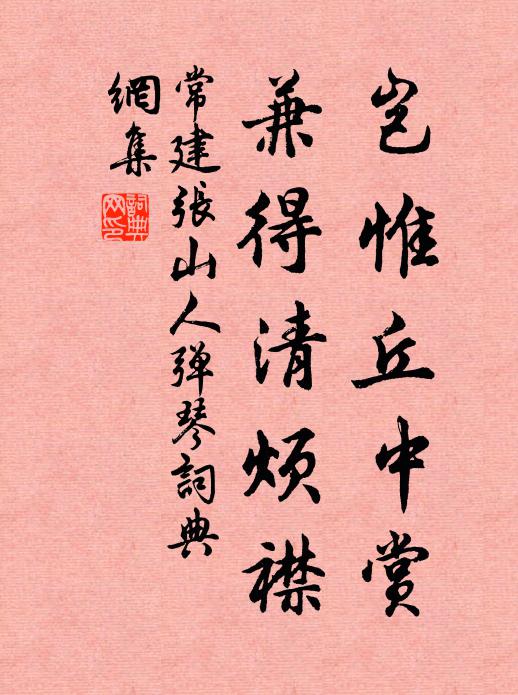 岂惟丘中赏
兼得清烦襟
常建張山人弹琴詞典
網集
詞典网印